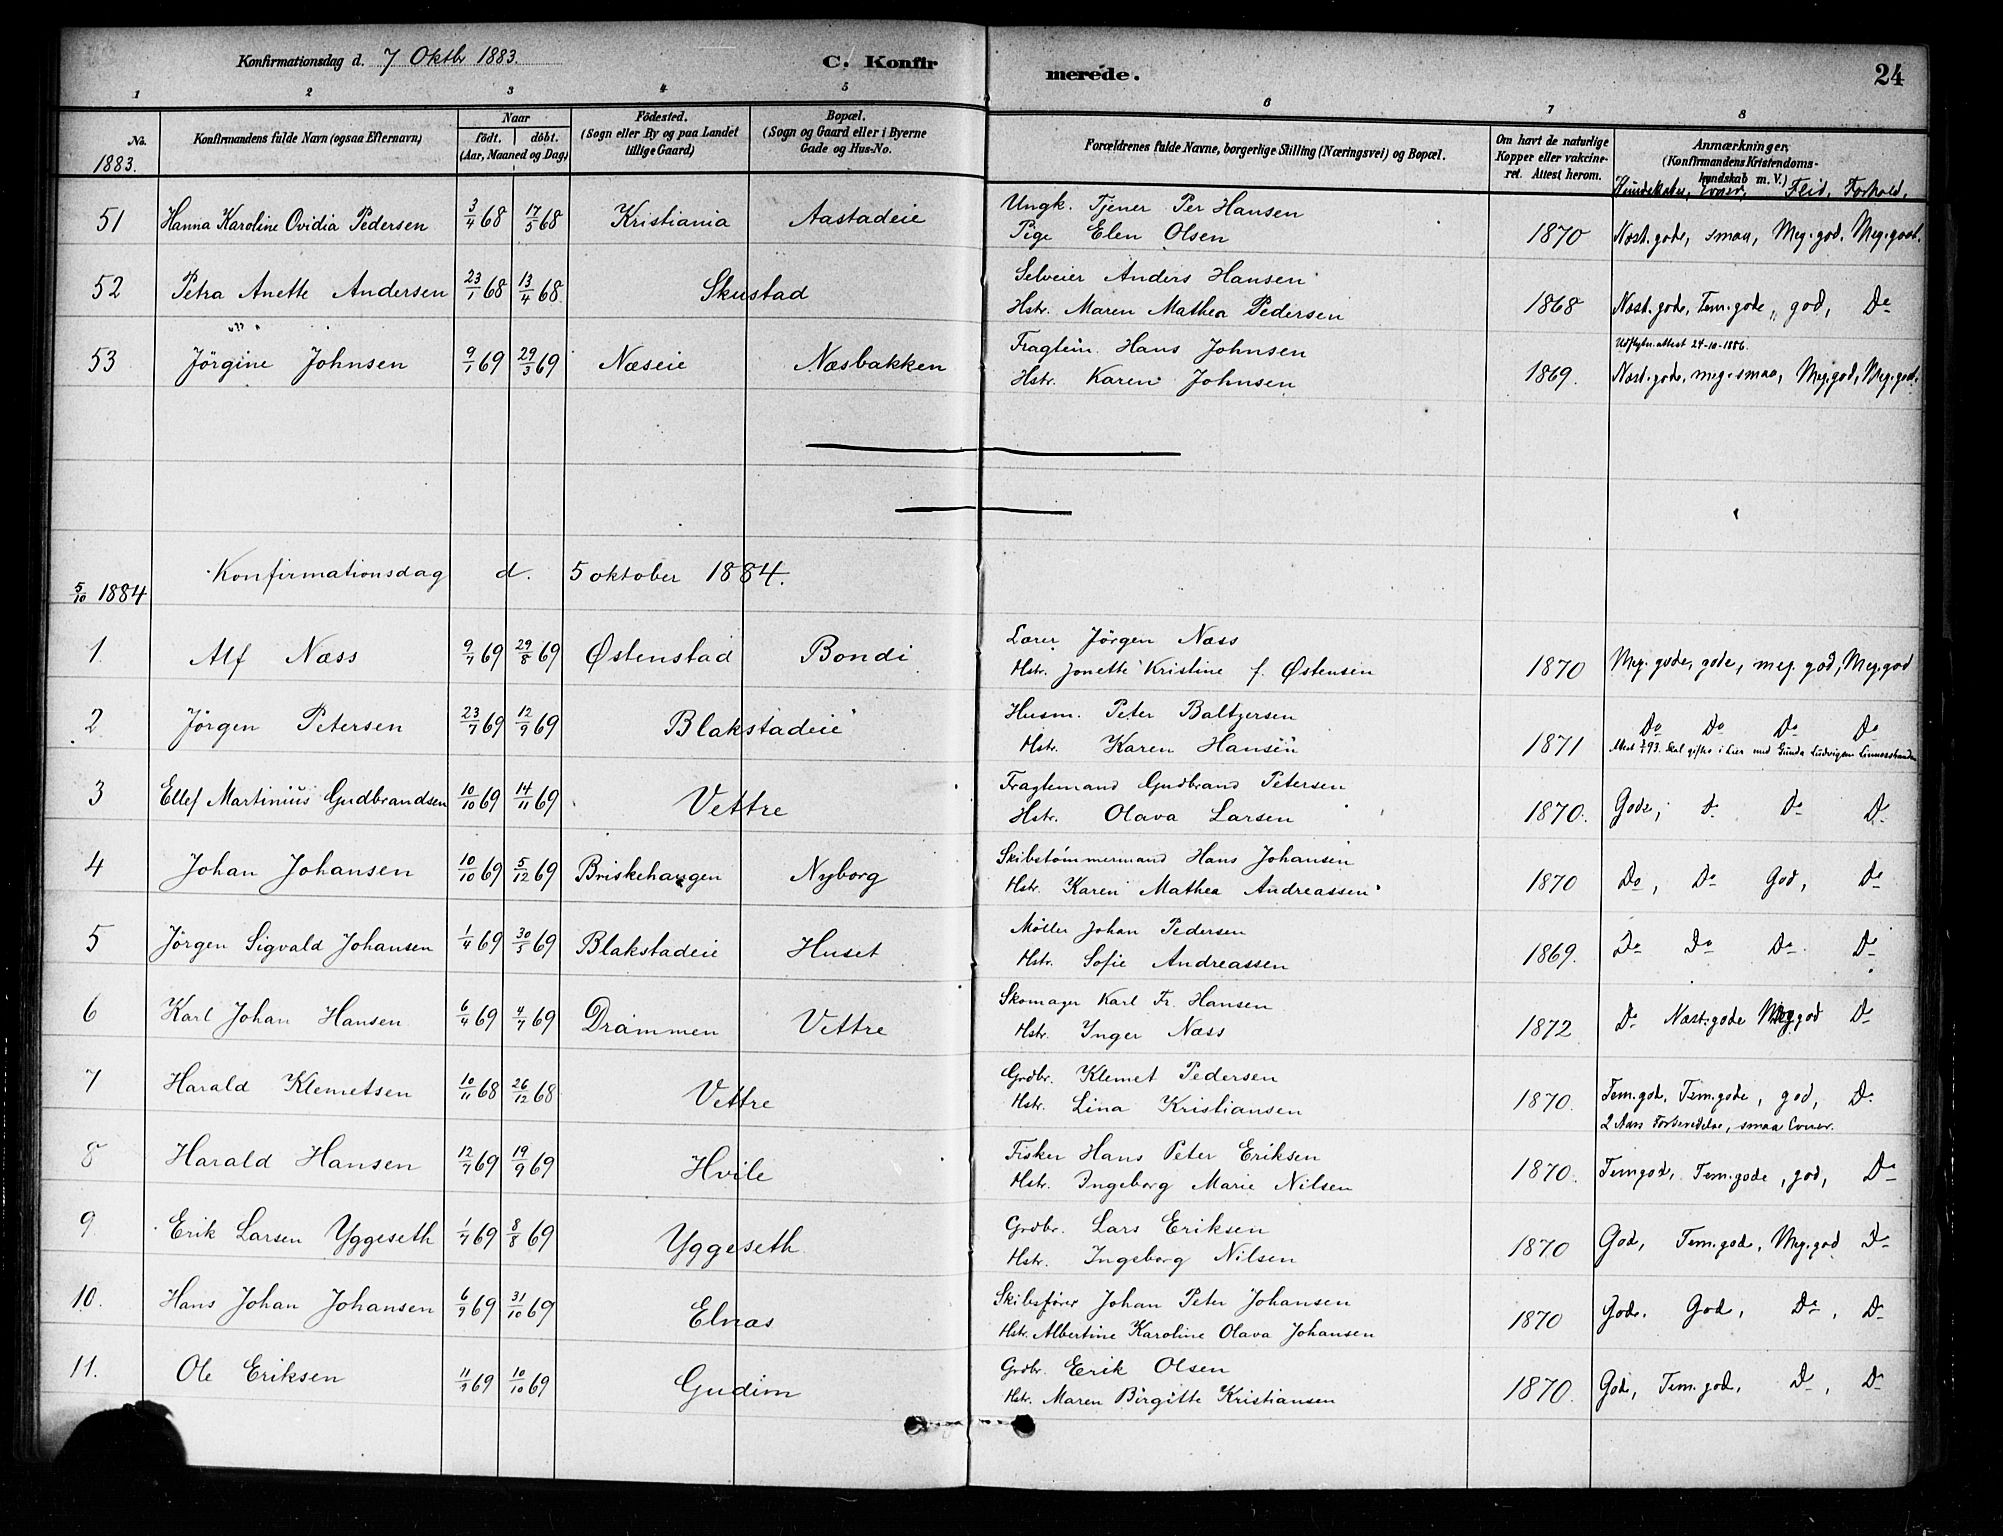 Konfirmationsdag d. 7 Oktbr 1883.
C. Konfirmerede.
24
1 2 3 4 5 6 7 8
No. 1883.
Konfirmandens fulde Navn (ogsaa Efternavn)
Naar
födt. döbt.
(Aar, Maaned og Dag)
Födested.
(Sogn eller By og paa Landet
tillige Gaard)
Bopæl.
(Sogn og Gaard eller i Byerne
Gade og Hus-No.
Forældrenes fulde Navne, borgerlige Stilling (Næringsvei) og Bopæl.
Om havt de naturlige
Kopper eller vakcine-
ret. Attest herom.
Anmærkninger,
(Konfirmandens Kristendoms-
kundskab m. V.)
Kundskaber, Evner, Flid, Forhold,
51 Hanna Karoline Ovidia Pedersen 3/4 68 17/5 68 Kristiania Aastadeie Ungk. Tjener Per Hansen
Pige Elen Olsen 1870 Næst.gode, smaa, Meg.god. Meg.godt.
52 Petra Anette Andersen 23/1 68 13/4 68 Skustad Selveier Anders Hansen
Hstr. Maren Mathea Pedersen 1868 Næst.gode, Tem.gode, god, Do
53 Jörgine Johnsen 9/1 69 29/3 69 Næseie Næsbakken Fragtem. Hans Johnsen
Hstr. Karen Johnsen 1869. Udflytn.attest 24-10-1886.
Næst.gode, meg.smaa, Meg.god, Meg.godt.
5/10 1884 Konfirmationsdag d. 5 oktober 1884.
1. Alf Næss 9/7 69 29/8 69 Østenstad Bondi Lærer Jörgen Næss
Hstr. Jonette Kristine f. Østensen 1870 Meg.gode, gode, meg.god, Meg.god
2 Jörgen Petersen 23/7 69 12/9 69 Blakstadeie Husm. Peter Baltzersen
Hstr. Karen Hansen 1871 Do Do Do Do
Skal giftes i Lier med Gunda Ludvigsen Linnesstranden
3 Ellef Martinius Gudbrandsen 10/10 69 14/11 69 Vettre Fragtemand Gudbrand Petersen
Hstr. Olava Larsen 1870. Gode, Do Do Do
4 Johan Johansen 10/10 69 5/12 69 Briskehaugen Nyborg Skibstømmermand Hans Johansen
Hstr. Karen Mathea Andreassen 1870 Do, Do God, Do
5 Jörgen Sigvald Johansen 1/4 69 30/5 69 Blakstadeie Huset Møller Johan Pedersen
Hstr. Sofie Andreassen 1869. Do Do Do Do
6 Karl Johan Hansen 6/4 69 4/7 69 Drammen Vettre Skomager Karl Fr. Hansen
Hstr. Inger Næss 1872 Do Næst.gode Meg.god Do
7 Harald Klemetsen 10/11 68 26/12 68 Vettre Grdbr. Klemet Pedersen
Hstr. Lina Kristiansen 1870. Tem.god, Tem.gode, god, Do
2 Aars Forberedelse, smaa Evner.
8 Harald Hansen 12/7 69 19/9 69 Hvile Fisker Hans Peter Eriksen
Hstr. Ingeborg Marie Nilsen 1870. Tem.god, Tem.gode, god, Do
9 Erik Larsen Yggeseth 1/7 69 8/8 69 Yggeseth Grdbr. Lars Eriksen
Hstr. Ingeborg Nilsen 1870 God, Tem.gode, Meg.god Do
10. Hans Johan Johansen 6/9 69 31/10 69 Elnæs Skibsfører Johan Peter Johansen
Hstr. Albertine Karoline Olava Johansen 1870 Gode. God, Do, Do
11. Ole Eriksen 11/9 69 10/10 69 Gudim Grdbr. Erik Olsen
Hstr. Maren Birgitte Kristiansen 1870. God, Tem.god, Do, Do